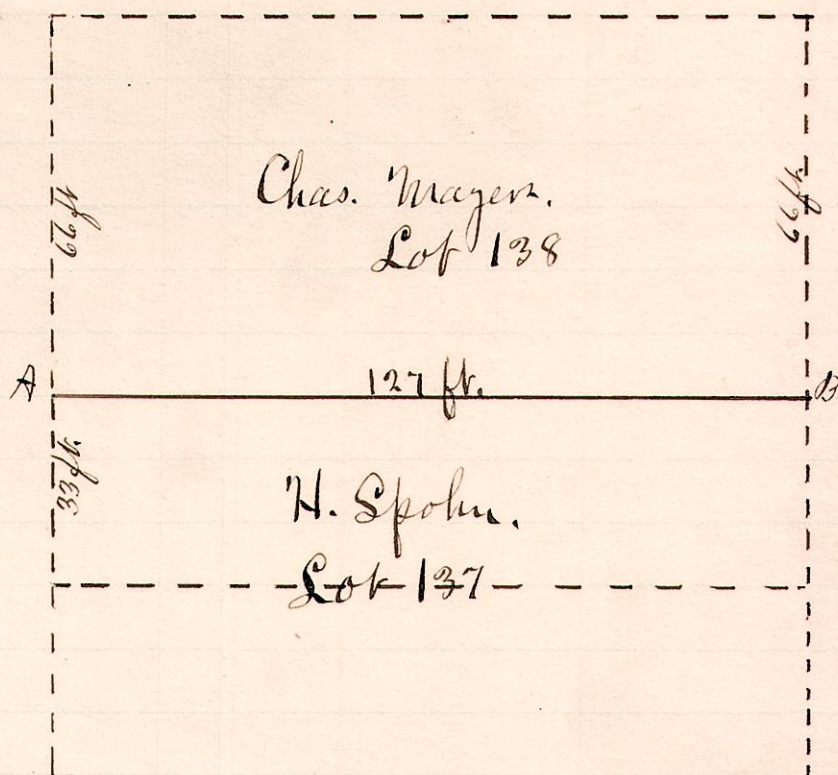 Chas. Mayers.
Lot 138
66 ft
66 ft
A
127 ft.
B
33 ft.
H. Spohn.
Lot 137